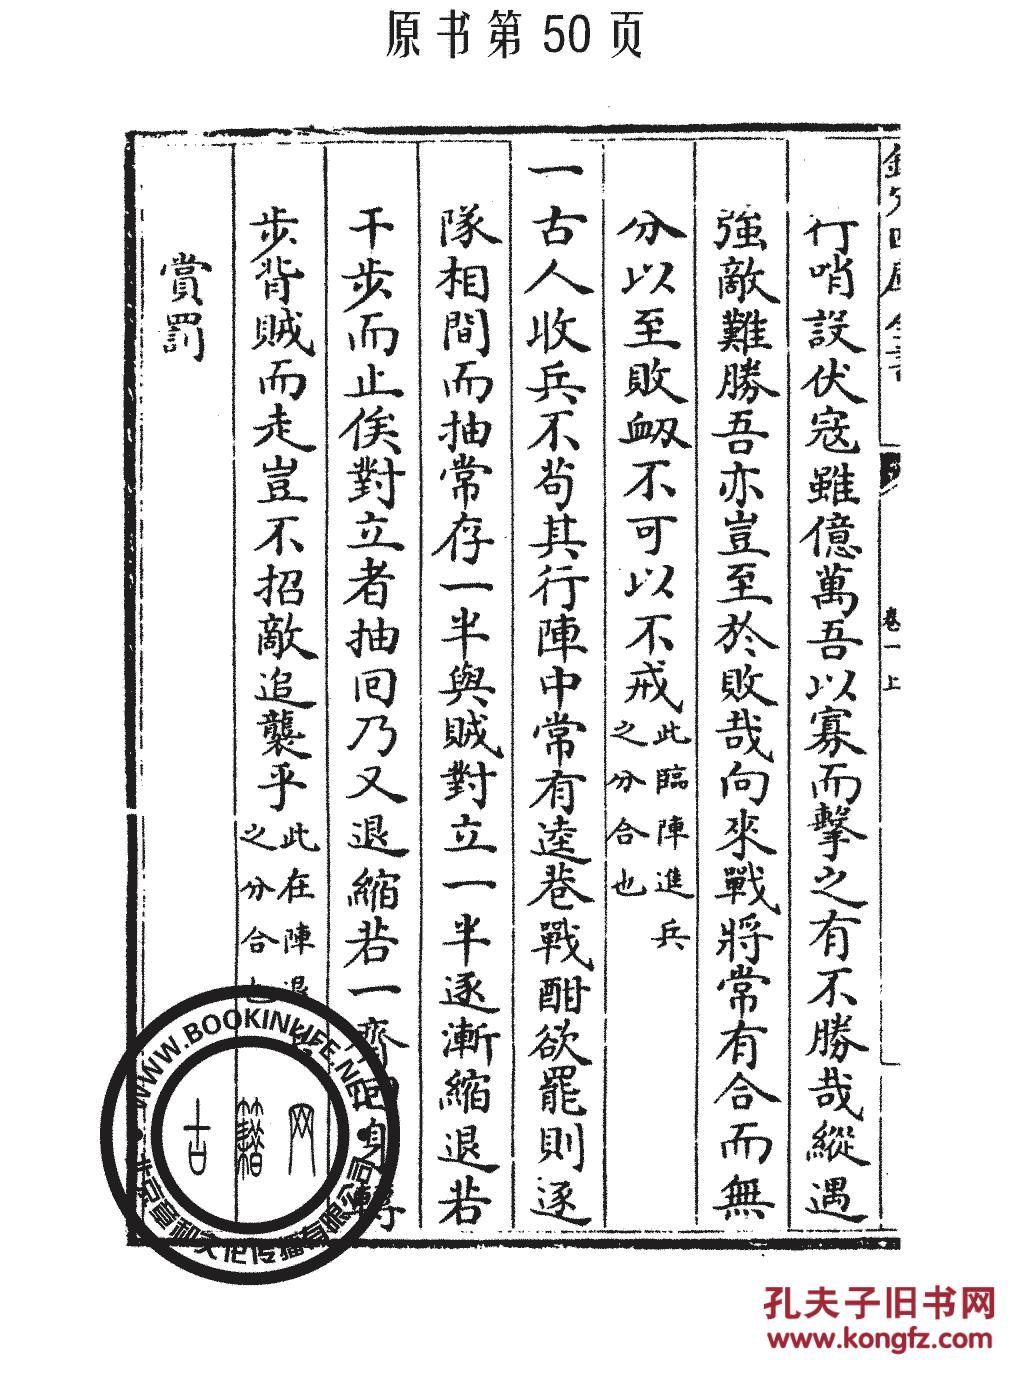 原书第50页
欽定四庫全書
卷一上
行哨設伏寇雖億萬吾以寡而擊之有不勝哉縱遇
強敵難勝吾亦豈至於敗哉向來戰將常有合而無
分以至敗衂不可以不戒
此臨陣進兵
之分合也
一古人收兵不苟其行陣中常有逵巷戰酣欲罷則逐
隊相間而抽常存一半與賊對立一半逐漸縮退若
干步而止俟對立者抽回乃又退縮若一齊回身轉
步背賊而走豈不招敵追襲乎
此在陣退
之分合也
賞罰
WWW.BOOKINLIFE.NET
古籍网
有限公司
孔夫子旧书网
www.kongfz.com